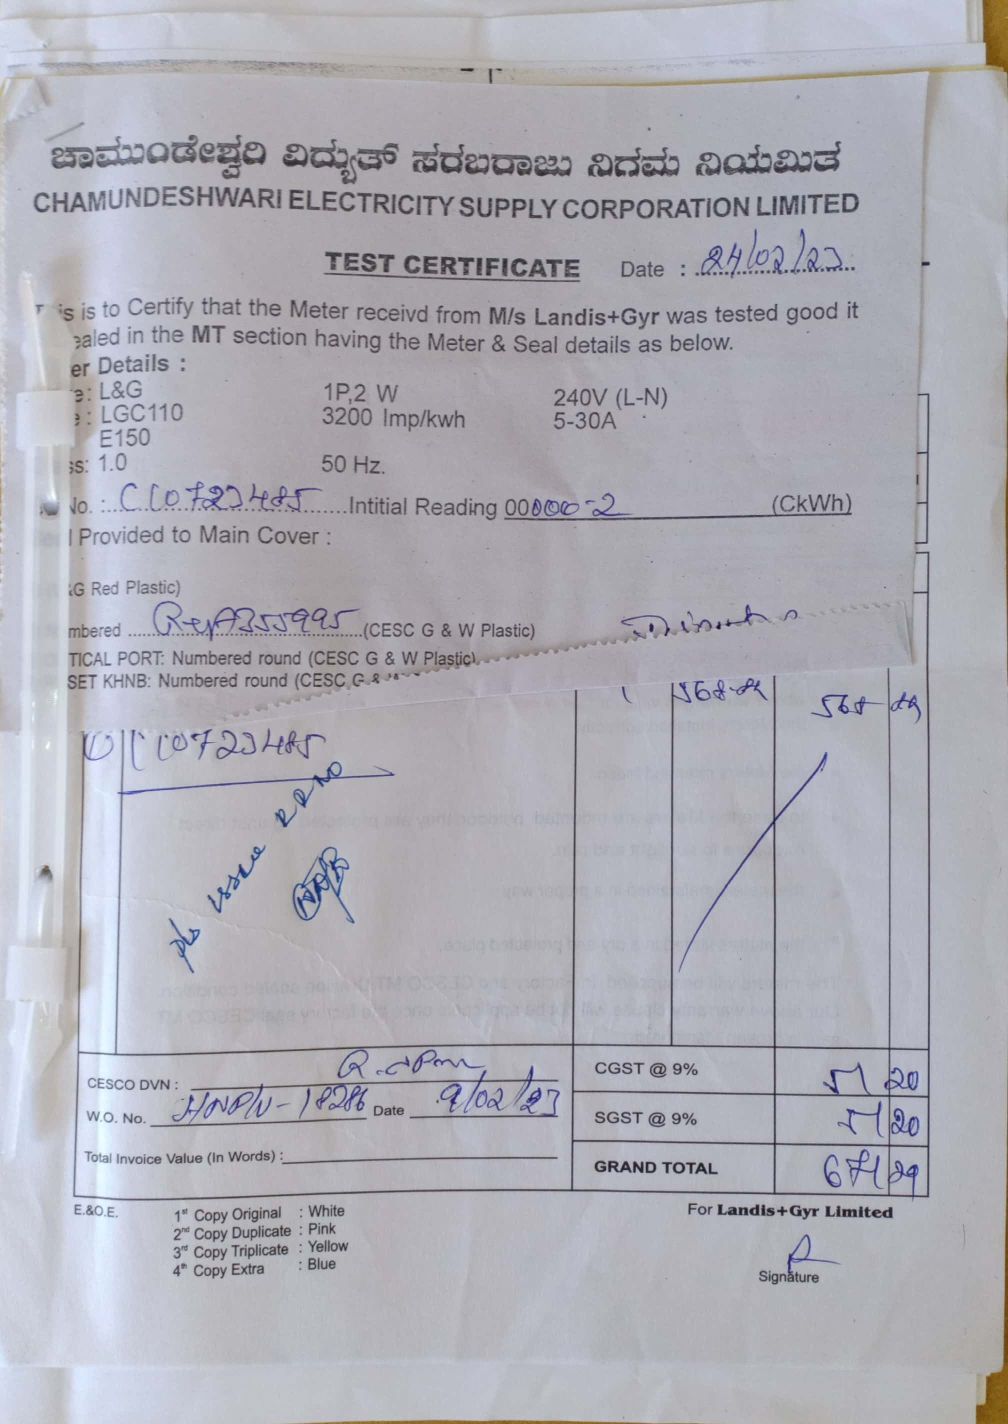 ಚಾಮುಂಡೇಶ್ವರಿ ವಿದ್ಯುತ್ ಸರಬರಾಜು ನಿಗಮ ನಿಯಮಿತ
CHAMUNDESHWARI ELECTRICITY SUPPLY CORPORATION LIMITED
TEST CERTIFICATE Date : 24/02/23
is to Certify that the Meter receivd from M/s Landis+Gyr was tested good it
ealed in the MT section having the Meter & Seal details as below.
er Details :
e: L&G 1P,2 W 240V (L-N)
: LGC110 3200 Imp/kwh 5-30A
E150
ss: 1.0 50 Hz.
No. : C110723485 Intitial Reading 00000-2 (CkWh)
l Provided to Main Cover :
G Red Plastic)
mbered (CESC G & W Plastic)
TICAL PORT: Numbered round (CESC G & W Plastic)
SET KHNB: Numbered round (CESC G &
1 568-89 568 89
10723485
pls issue RR NO
CESCO DVN :
W.O. No. 18286 Date 9/02/23
Total Invoice Value (In Words) :
CGST @ 9% 51 20
SGST @ 9% 51 20
GRAND TOTAL 671 29
E.&O.E.
1st Copy Original : White
2nd Copy Duplicate : Pink
3rd Copy Triplicate : Yellow
4th Copy Extra : Blue
For Landis+Gyr Limited
Signature